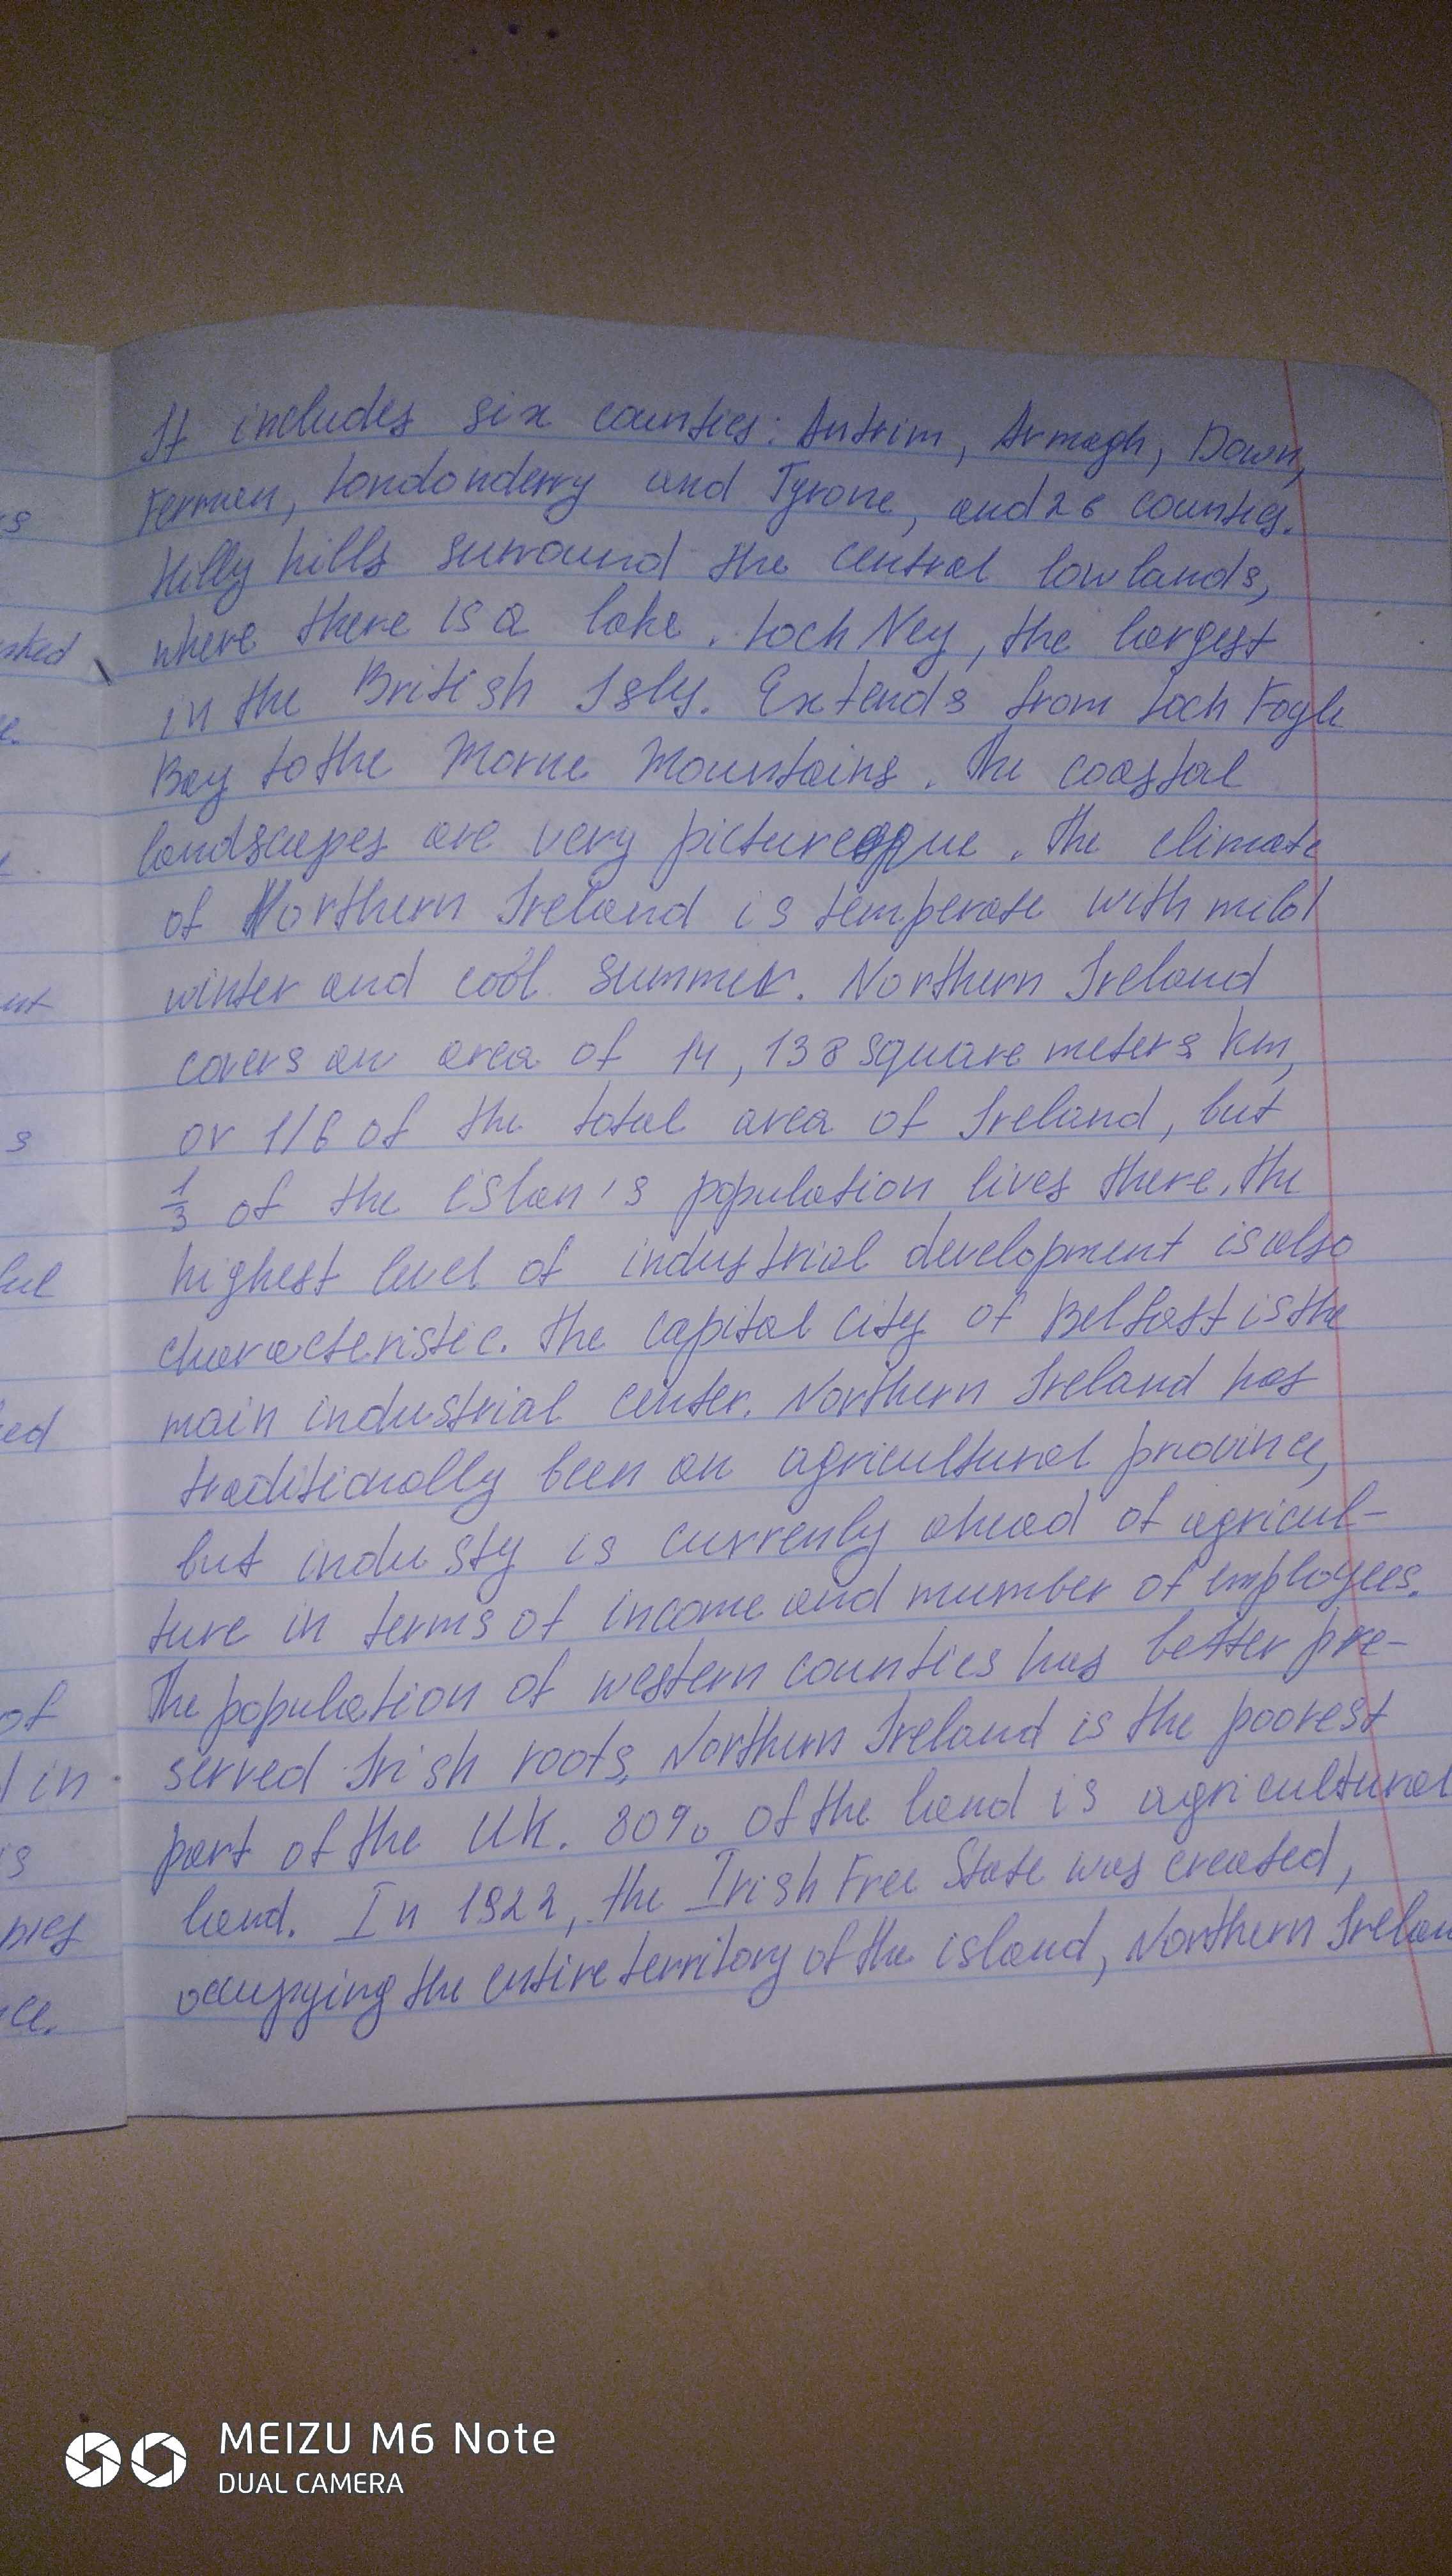 It includes six counties: Antrim, Armagh, Down,
Fermen, Londonderry and Tyrone, and 26 counties.
Hilly hills surround the central lowlands,
where there is a lake. Loch Ney, the largest
in the British Isly. Extends from Loch Fogle
Bay to the Morne Mountains. The coastal
landscapes are very picturesque. The climate
of Northern Ireland is temperate with mild
winter and cool summer. Northern Ireland
covers an area of 14,138 square meters km,
or 1/6 of the total area of Ireland, but
1/3 of the islan's population lives there. The
highest level of industrial development is also
characteristic. The capital city of Belfast is the
main industrial center. Northern Ireland has
traditionally been an agricultural province,
but industy is currenly ahead of agricul-
ture in terms of income and mumber of employees.
The population of western counties has better pre-
served Irish roots, Northern Ireland is the poorest
part of the UK. 80% of the land is agricultural
land. In 1922, the Irish Free State was created,
occupying the entire territory of the island, Northern Irelan
s
sked
e.
ut
s
ful
ed
of
in
is
ce.
MEIZU M6 Note
DUAL CAMERA